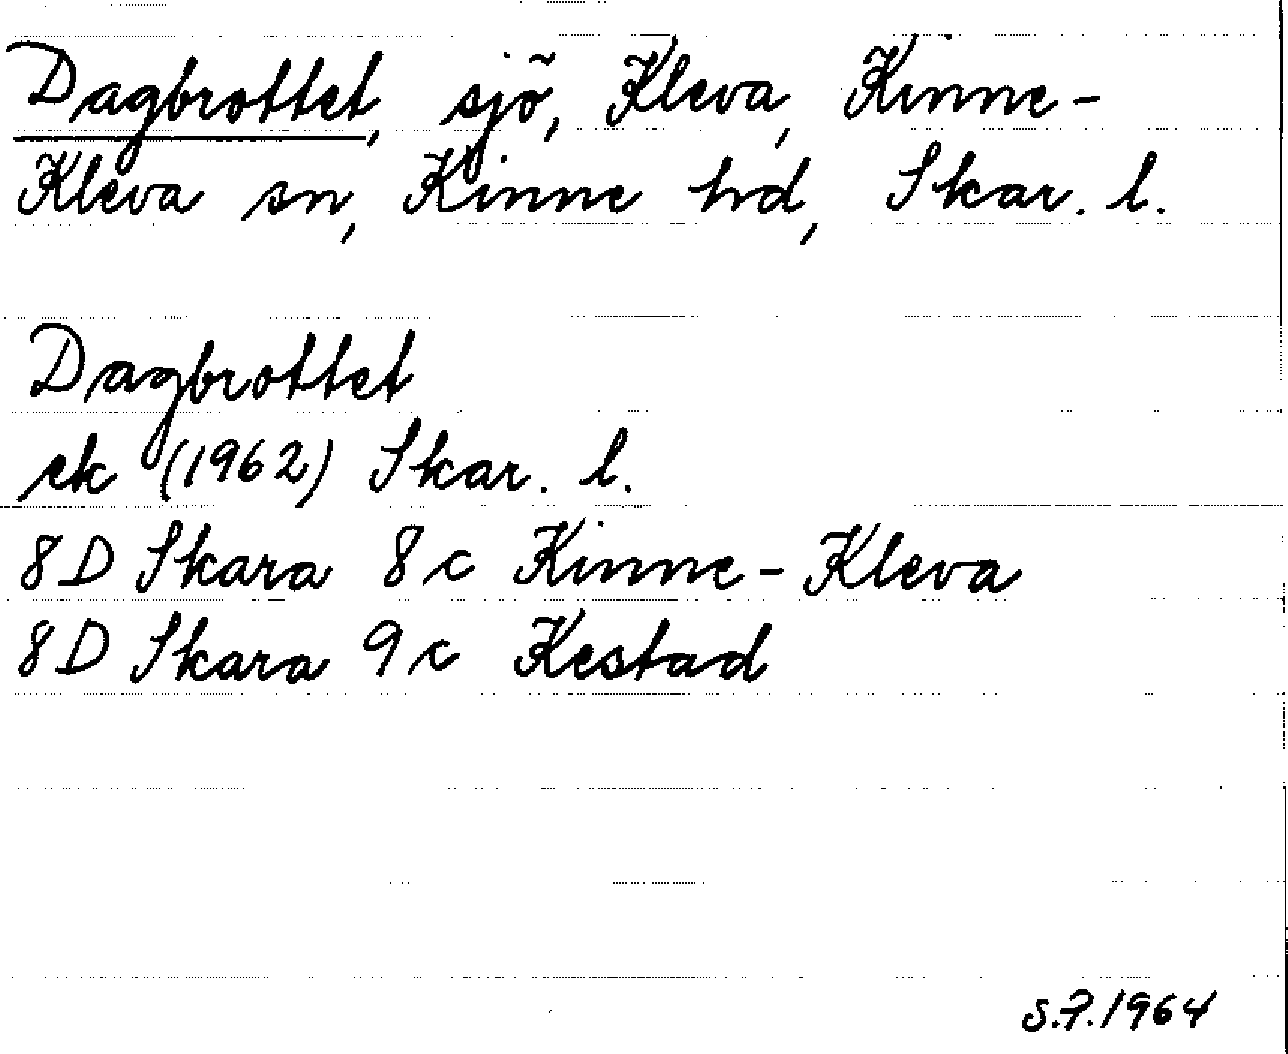 Dagbrottet, sjö, Kleva, Kinne-
Kleva sn, Kinne hd, Skar. l.
Dagbrottet
ek (1962) Skar. l.
8D Skara 8c Kinne-Kleva
8D Skara 9c Kestad
S.F. 1964